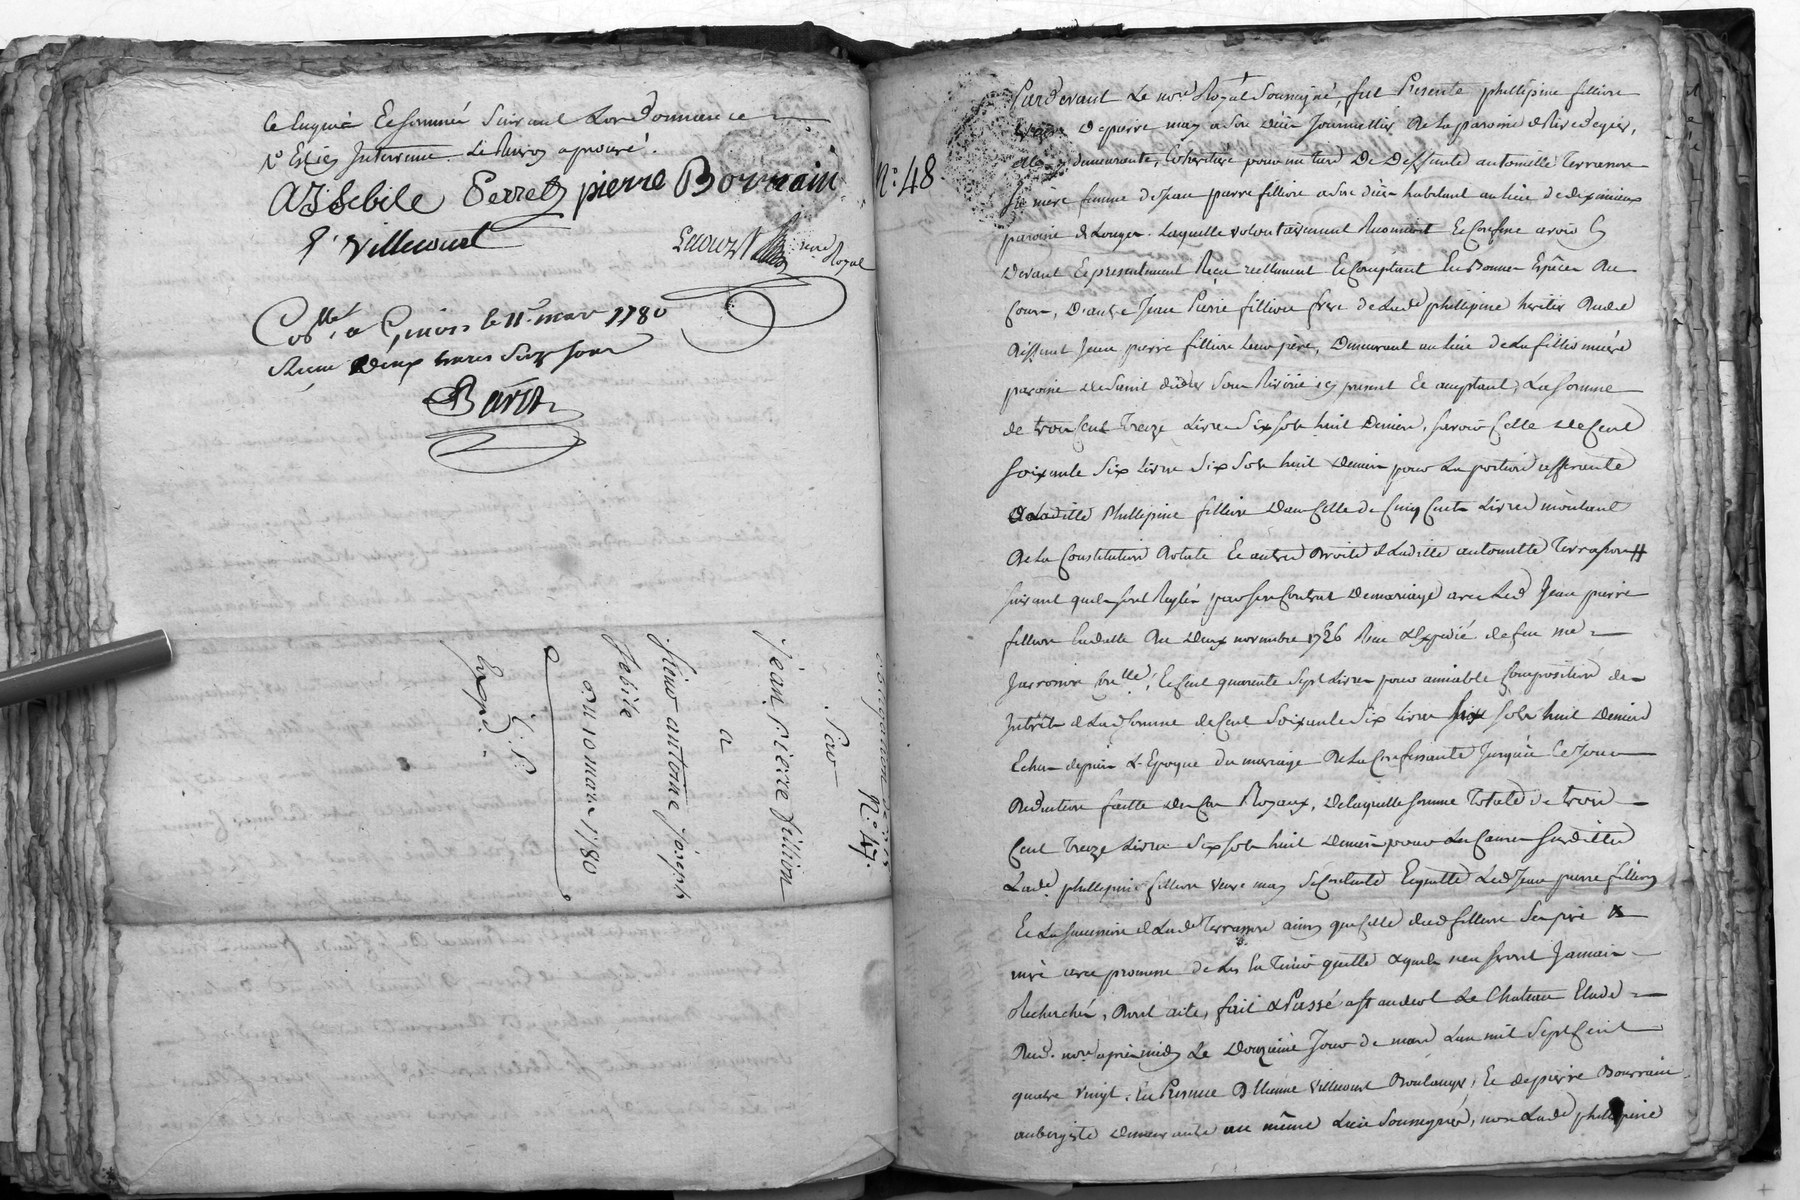 ce enquis Et sommés Suivant Lordonnance
pierre Bourrain
AJ Sebile Perret
E villecourt
nore Royal
Collé a Gmois le 11e mars 1780
Recu deux livres Seize sous
Barth
N.o 47.
Par
Jean Pierre fillion
a
Sieur antoine joseph
Sebile
du 10 mars 1780
C. P.
Expé.
N.o 48
Pardevant Le nore Royal Soussigné, fut Presente phillipine fillion
veuve De pierre may a Son vivant Journallier De la paroisse de Rivedegier,
y demeurante, Cohéritiere pour un tiers De Deffunte antoinette Terrasson
Sa mère femme de Jean pierre fillion a Son vivant habitant au lieu de
paroisse de Longes. Laquelle volontairement Reconnoit Et Confesse avoir Cy
Devant Et presentement Reçu reellement Et Comptant En Bonnes Espèces Au
Cours, D'autre Jean Pierre fillion frere De Lade phillipine heritier Dudit
Deffunt Jean pierre fillion leur père, Demeurant au lieu de La fillionnière
paroisse de Saint didier Sous Riverie icy present Et acceptant, La Somme
de trois Cent Treize Livres Six Sols huit Deniers, Savoir Celle de Cent
Soixante Six Livres Six Sols huit Deniers pour La portion afferante
A Laditte Phillipine fillion Dans Celle de Cinq Cents Livres montant
De La Constitution Dotale Et autres Droits de Laditte antoinette Terrasson
Suivant quils sont Reglés par son Contrat De mariage avec Led Jean pierre
fillion En datte Du Deux novembre 1726 Reçu & Expedié de feu me
Jarrosson Collé, Et Cent quarente Sept Livres pour amiable Composition des
Intérêts de Lad Somme de Cent Soixante Six Livres Six Sols huit Deniers
Echus depuis L'Epoque du mariage De La Confessante Jusqu'à Ce Jour
Deduction faitte Des Cas Royaux, De laquelle Somme Totale de trois
Cent Treize Livres Six Sols huit Deniers pour Les Causes Susdittes
Lade phillipine fillion veuve may Se Contente Et quitte Led Jean pierre fillion
Et La Succession de Lade Terrasson ainsy que Celle dud fillion Son pere
avec promesse de Les En Tenir quitte & quils n'en seront Jamais
Recherchés, Dont acte, fait & Passé a St andeol Le Chateau Etude
Dud. nore après midy Le Douzième Jour de mars L'an mil Sept Cent
quatre vingt. En Presence D'Etienne villecourt Boulanger, Et de pierre Bourrain
aubergiste Demeurants au même Lieu Soussignés, non Lade phillipine